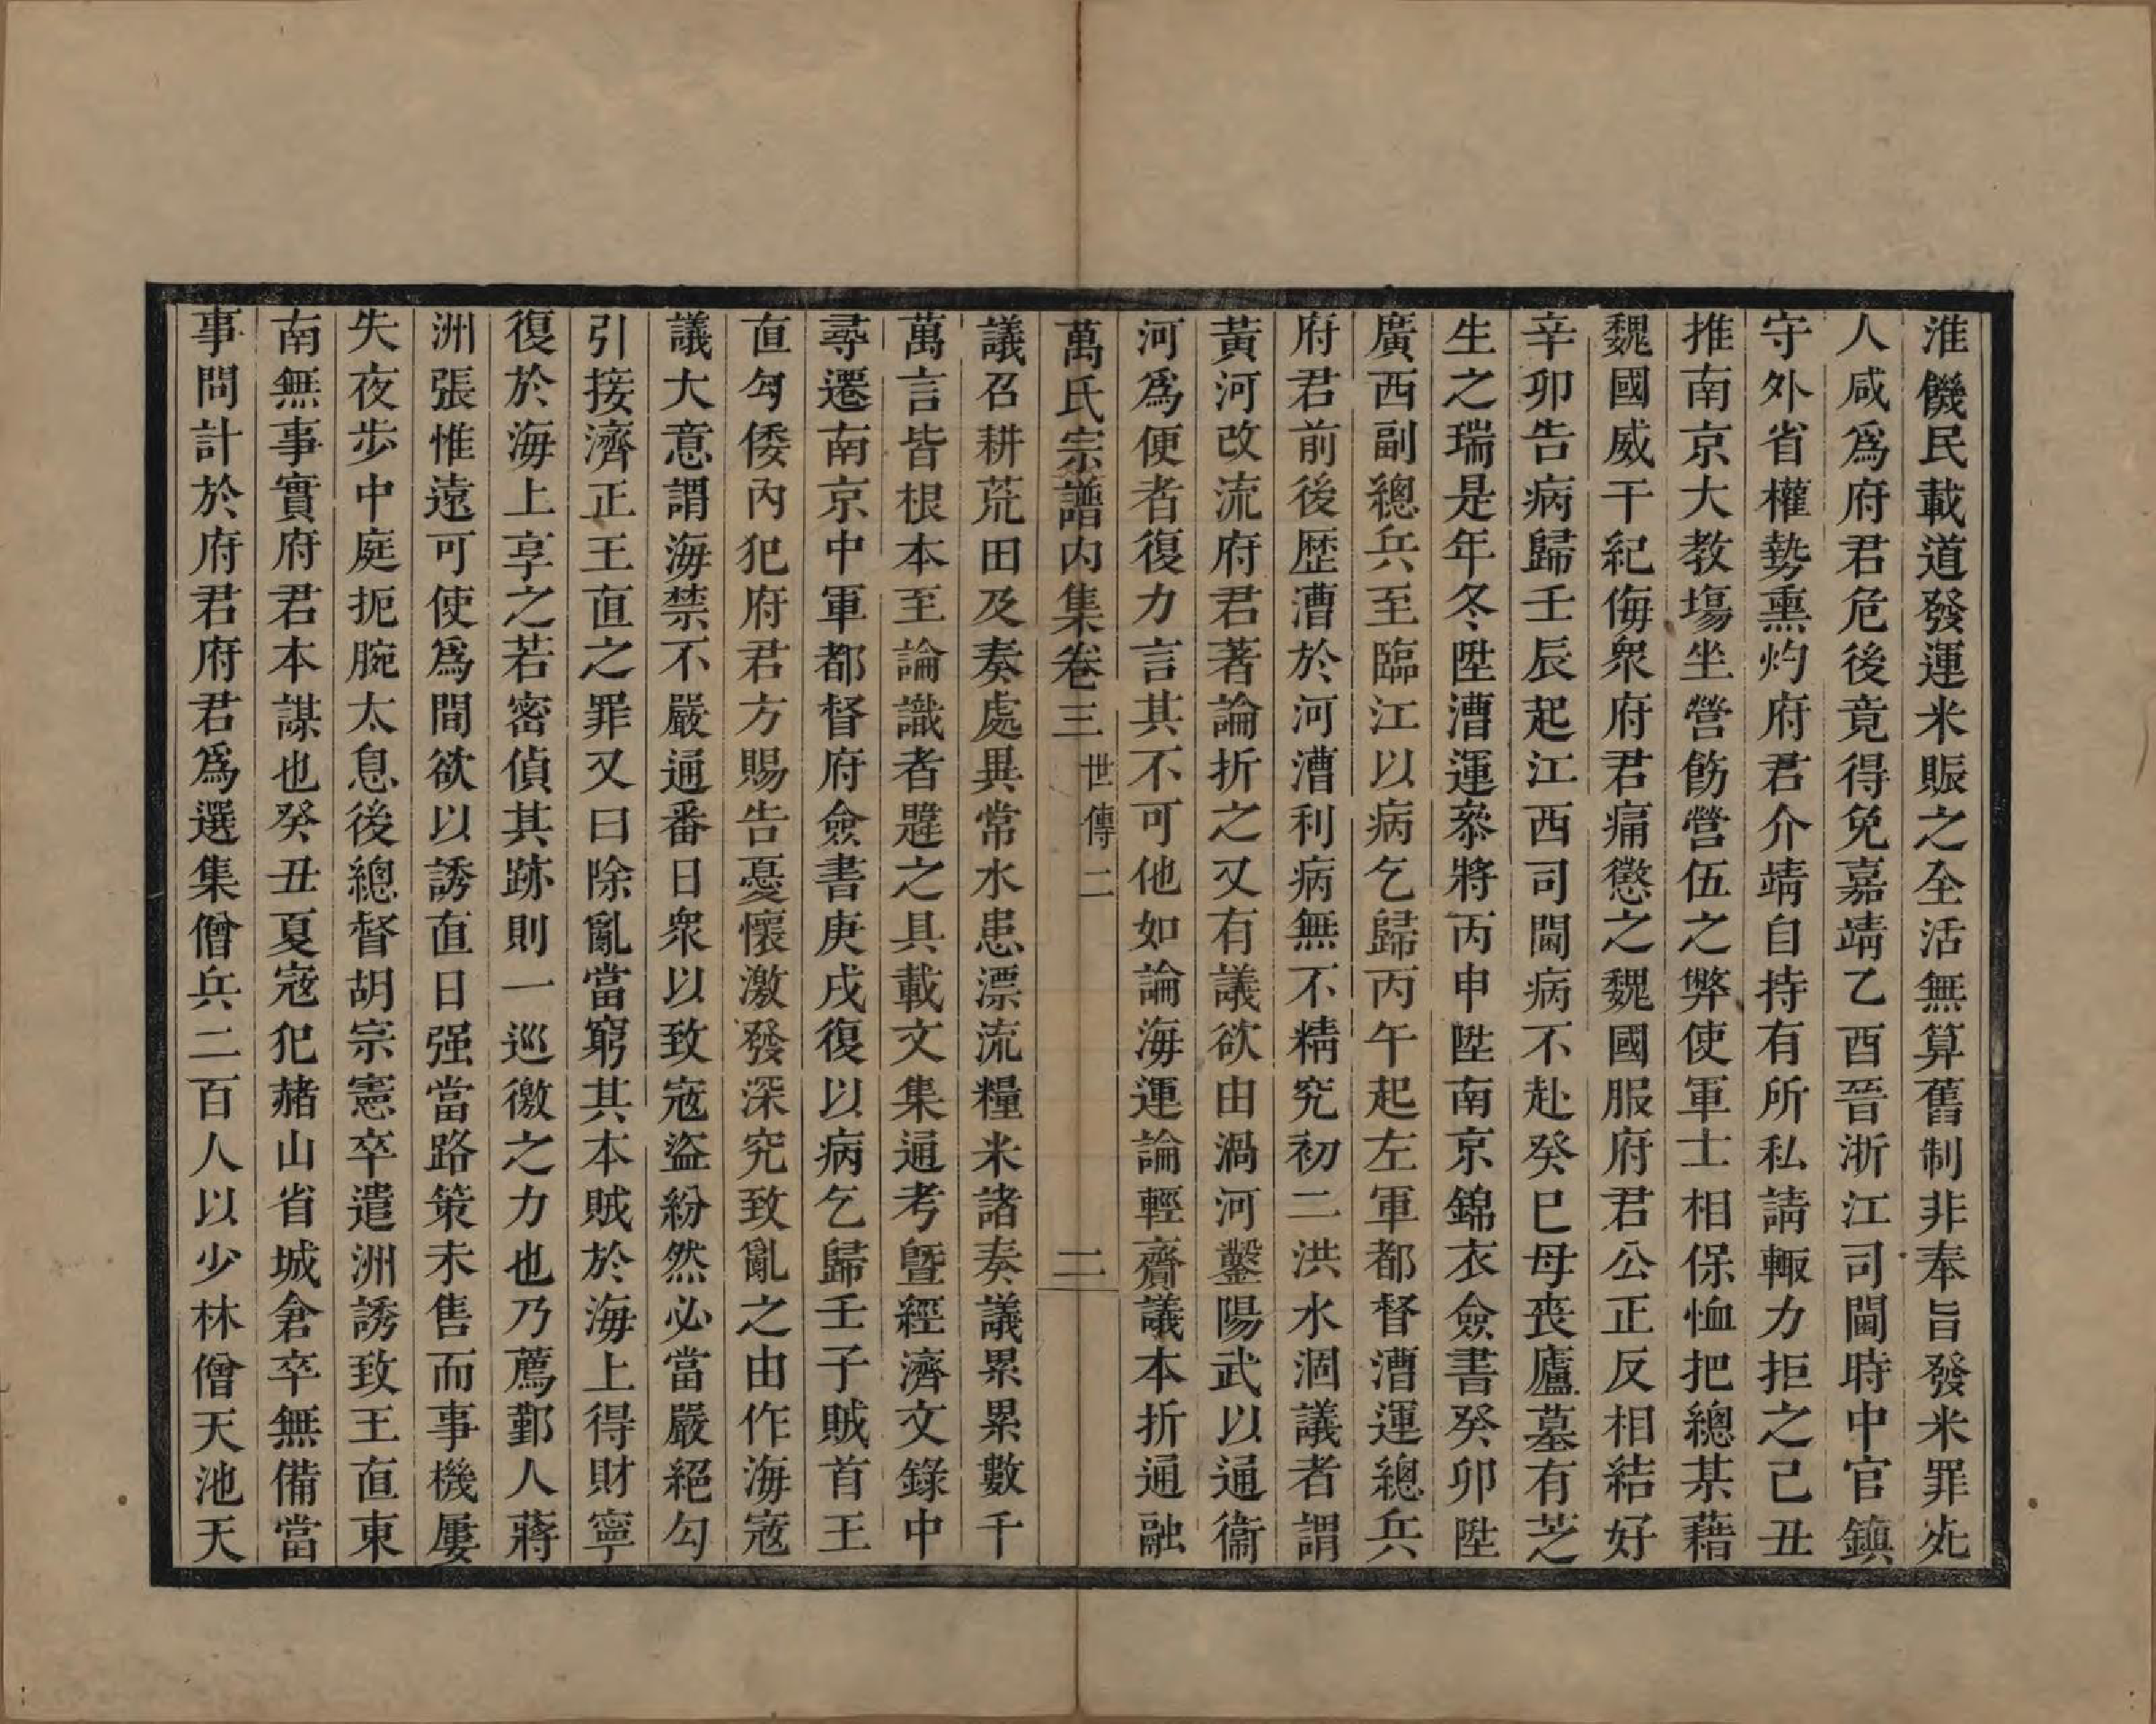 淮饑民載道發運米賑之全活無算舊制非奉旨發米罪死
人咸爲府君危後竟得免嘉靖乙酉晉浙江司閫時中官鎮
守外省權勢熏灼府君介靖自持有所私請輙力拒之己丑
推南京大教塲坐營飭營伍之弊使軍士相保恤把總某藉
魏國威干紀侮衆府君痛懲之魏國服府君公正反相結好
辛卯告病歸壬辰起江西司閫病不赴癸巳母丧廬墓有芝
生之瑞是年冬陞漕運叅將丙申陞南京錦衣僉書癸卯陞
廣西副總兵至臨江以病乞歸丙午起左軍都督漕運總兵
府君前後歷漕於河漕利病無不精究初二洪水涸議者謂
黃河改流府君著論折之又有議欲由渦河鑿陽武以通衞
河爲便者復力言其不可他如論海運論輕齎議本折通融
萬氏宗譜內集卷三 世傳二 二
議召耕荒田及奏處異常水患漂流糧米諸奏議累累數千
萬言皆根本至論識者韙之具載文集通考暨經濟文錄中
尋遷南京中軍都督府僉書庚戌復以病乞歸壬子賊首王
直勾倭內犯府君方賜告憂懷激發深究致亂之由作海寇
議大意謂海禁不嚴通番日衆以致寇盜紛然必當嚴絕勾
引接濟正王直之罪又曰除亂當窮其本賊於海上得財寧
復於海上享之若密偵其跡則一巡徼之力也乃薦鄞人蔣
洲張惟遠可使爲間欲以誘直日强當路策未售而事機屢
失夜步中庭扼腕太息後總督胡宗憲卒遣洲誘致王直東
南無事實府君本謀也癸丑夏寇犯赭山省城倉卒無備當
事問計於府君府君爲選集僧兵二百人以少林僧天池天